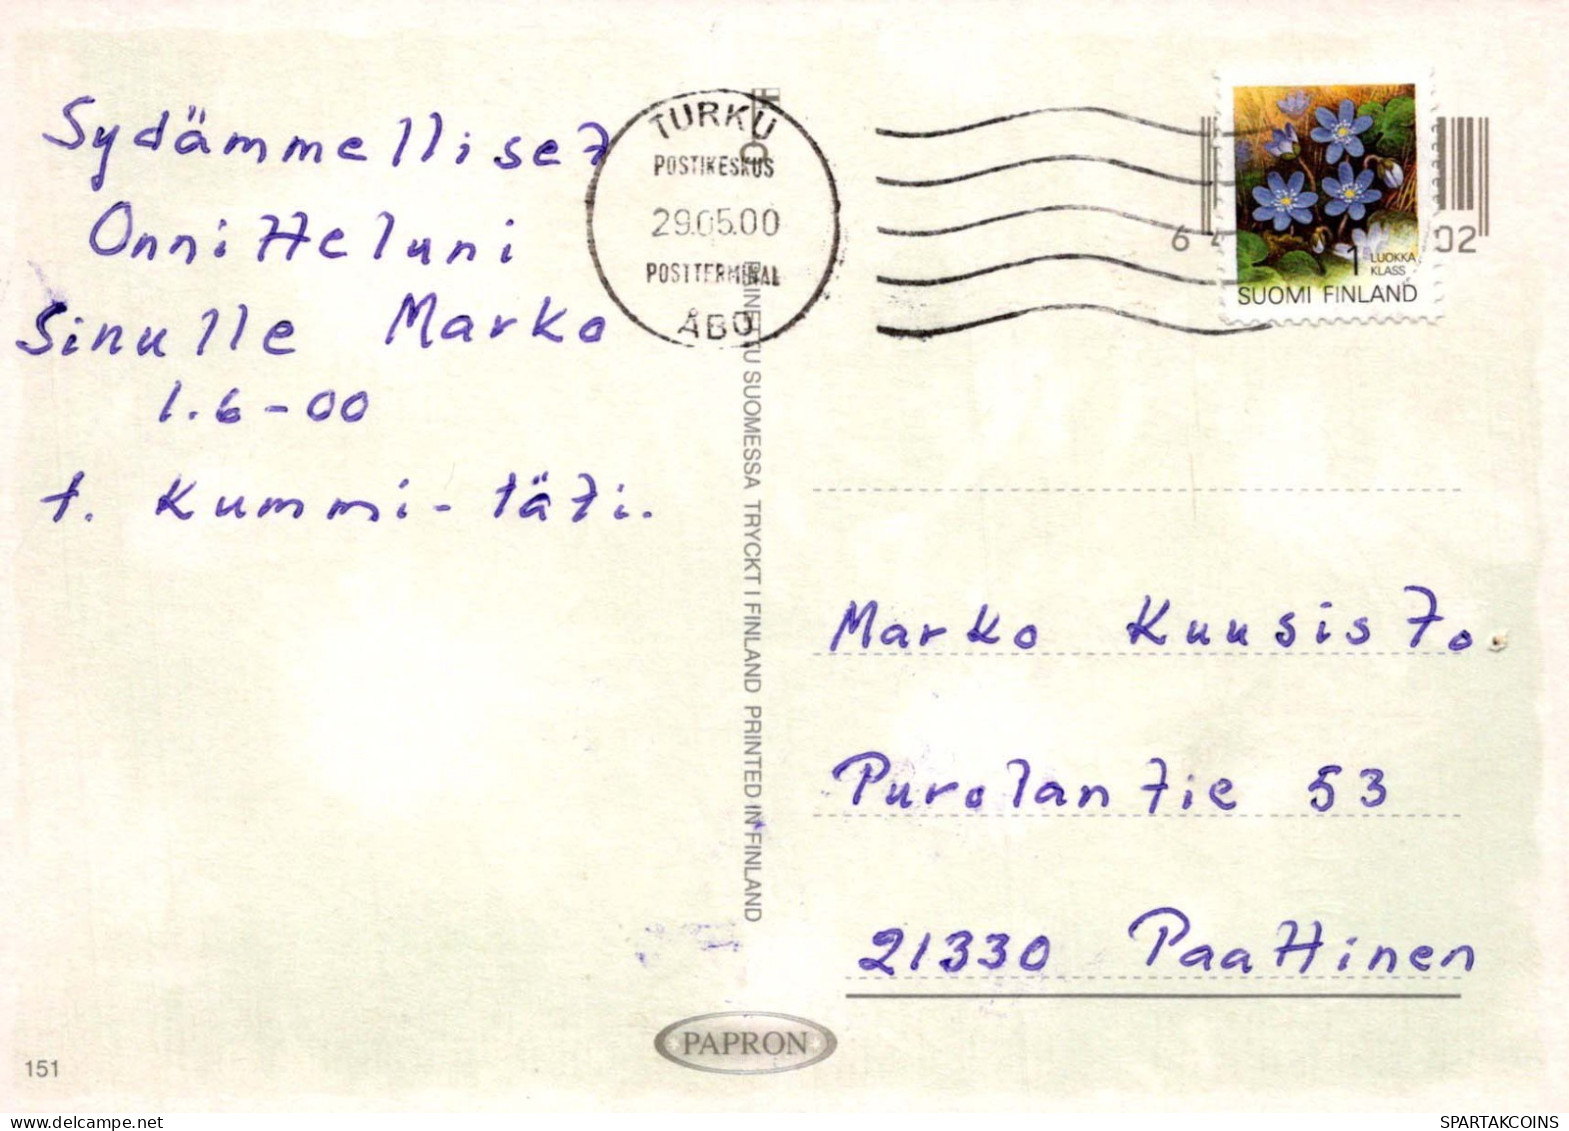 Sydämmelliset
Onnitteluni
Sinulle Marko
1.6-00
t. Kummi-täti.
TURKU
POSTIKESKUS
29.05.00
POSTTERMINAL
ÅBO
1 LUOKKA
KLASS
SUOMI FINLAND
02
SUOMESSA TRYCKT I FINLAND PRINTED IN FINLAND
Marko Kuusisto.
Purolantie 53
21330 Paattinen
PAPRON
151
SPARTAKCOINS